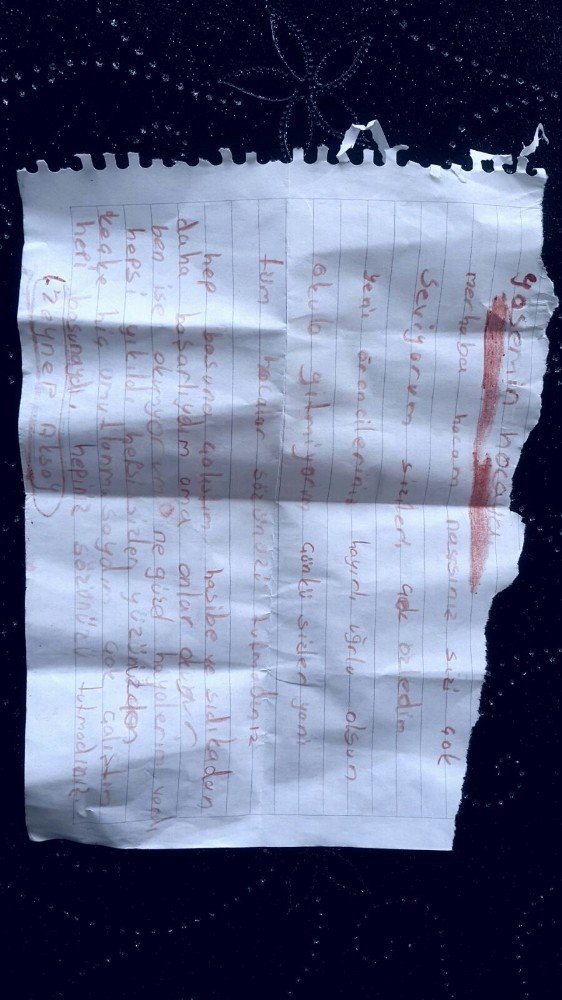 yasemin hocaya
merhaba hocam nassınız sizi çok
Seviyorum sizleri çok özledim
yeni örencileriniz hayırlı uğrlu olsun
okula gitmiyorum çünkü sizler yani
tüm hocalar sözünüzü tutmadınız
hep başuna çalışım hasibe ve sıdıkadan
daha başarlıydım ama onlar okuyor
ben ise okumyorum ne güsel hayelerim vardı
hepsi yıkıldı hepsi sizden yüzünüzden
keşke hiç umutlanmasaydım çok çalıştım
hepi başunaydı, hepiniz sözünüzü tutmadınız.
(Zeynep Aksoy)